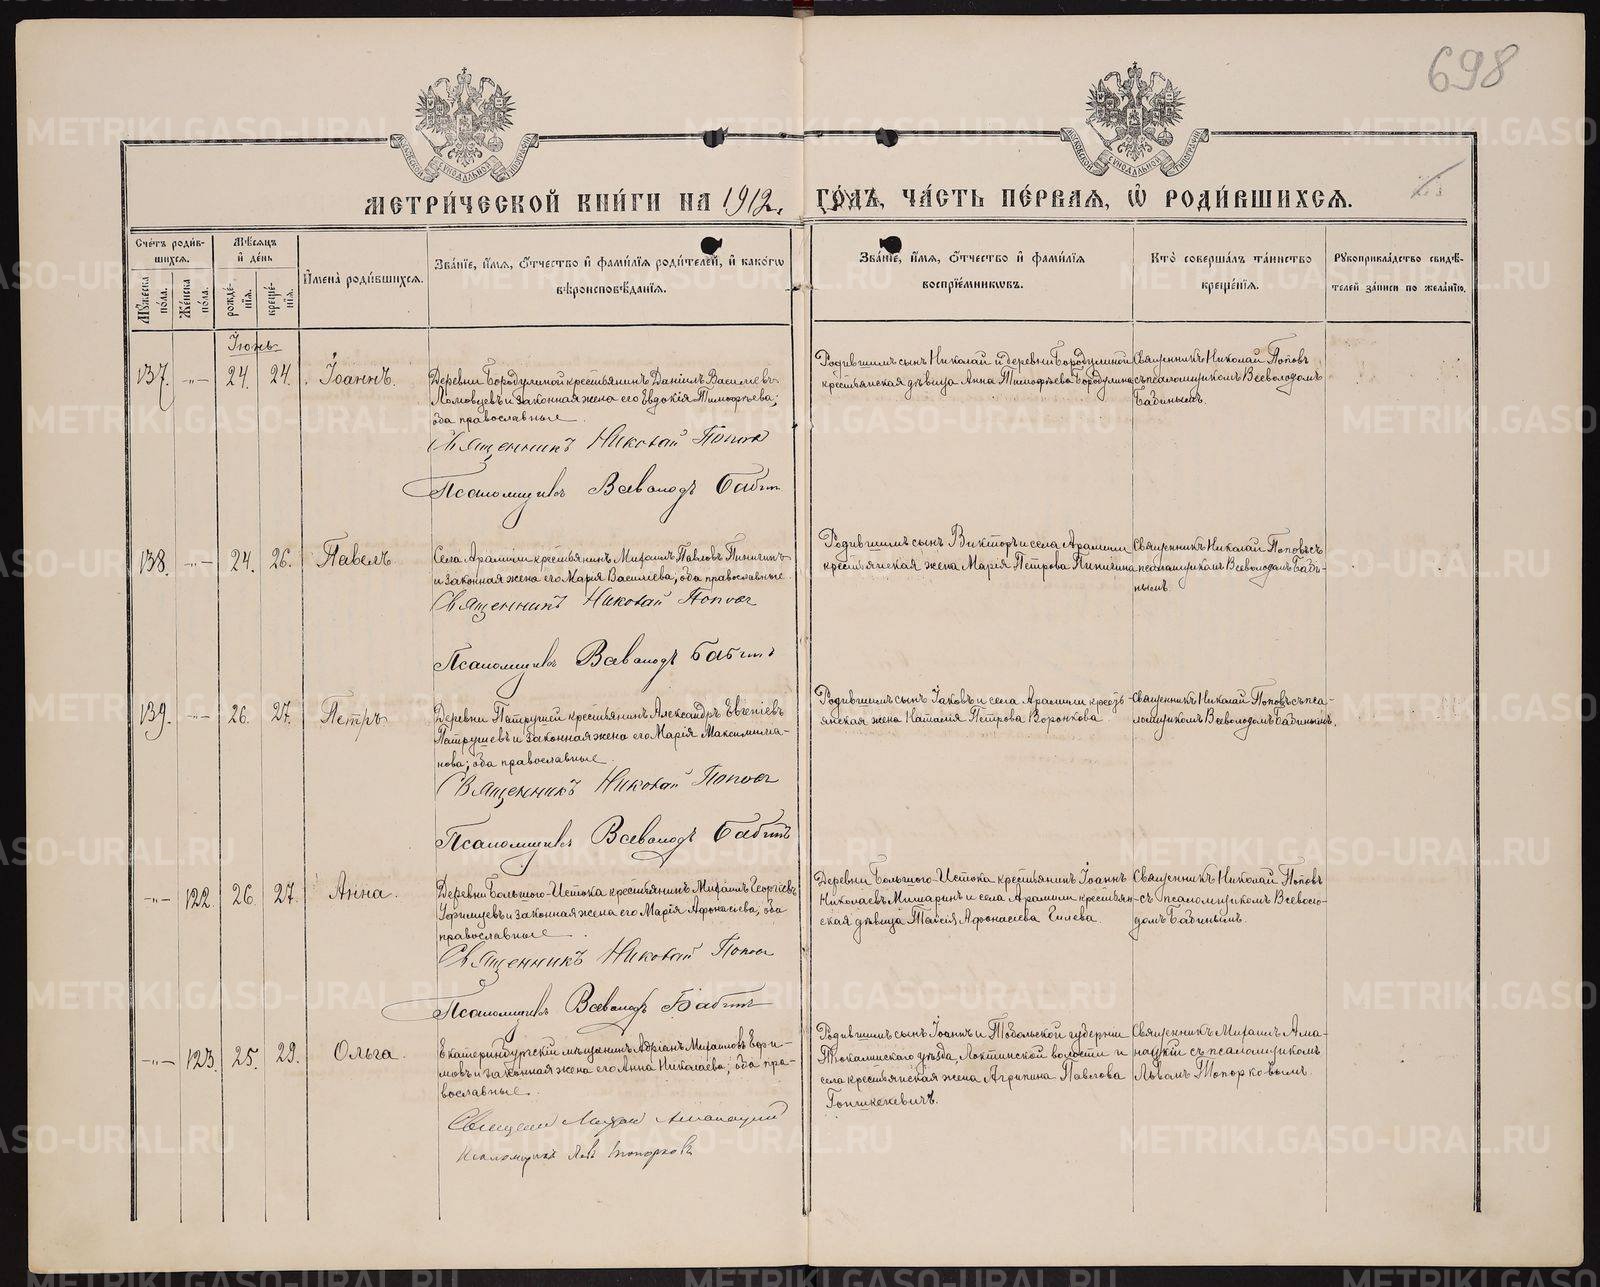 698
МЕТРИ́ЧЕСКОЙ КНИ́ГИ НА 1912. ГО́ДЪ, ЧА́СТЬ ПЕ́РВАЯ, Ѡ РОДИ́ВШИХСЯ.
Сче́тъ роди́вшихся.
Му́жеска по́ла.
Же́нска по́ла.
Мѣ́сяцъ и де́нь
рожде́нїя.
креще́нїя.
И́мена̀ роди́вшихся.
Зва́нїе, и́мя, ѻ́тчество и фами́лїя роди́телей, и како́гѡ
вѣроисповѣ́данїя.
Зва́нїе, и́мя, ѻ́тчество и фами́лїя
воспрїе́мниковъ.
Кто̀ соверша́лъ та́инство
креще́нїя.
Рукоприкла́дство свидѣ́-
телей за́писи по жела́нїю.
Іюнь
137. -"- 24. 24. Іоаннъ.
Деревни Бородулиной крестьянинъ Даніилъ Васильевъ
Ломовцевъ и законная жена его Евдокія Тимофѣева;
оба православные.
Священникъ Николай Поповъ
Псаломщикъ Всеволодъ Бабинъ
Родившимъ сынъ Николай и деревни Бородулиной
крестьянская дѣвица Анна Тимофѣева Бородулина
Священникъ Николай Поповъ
съ псаломщикомъ Всеволодомъ
Бабинымъ.
138. -"- 24. 26. Павелъ
Села Арамили крестьянинъ Михаилъ Павловъ Пиничинъ
и законная жена его Марія Васильева; оба православные
Священникъ Николай Поповъ
Псаломщикъ Всеволодъ Бабинъ
Родившимъ сынъ Викторъ и села Арамили
крестьянская жена Марія Петрова Пиничина
Священникъ Николай Поповъ съ
псаломщикомъ Всеволодомъ Баби-
нымъ.
139. -"- 26. 27. Петръ
Деревни Патрушей крестьянинъ Александръ Евгеніевъ
Патрушевъ и законная жена его Марія Максимилиа-
нова; оба православные.
Священникъ Николай Поповъ
Псаломщикъ Всеволодъ Бабинъ
Родившимъ сынъ Іаковъ и села Арамили кресть-
янская жена Наталія Петрова Воронкова
Священникъ Николай Поповъ съ пса-
ломщикомъ Всеволодомъ Бабинымъ.
-"- 122. 26. 27. Анна.
Деревни Большого-Истока крестьянинъ Михаилъ Георгіевъ
Уфимцевъ и законная жена его Марія Афонасіева; оба
православные.
Священникъ Николай Поповъ
Псаломщикъ Всеволодъ Бабинъ
Деревни Большого-Истока крестьянинъ Іоаннъ
Николаевъ Мишаринъ и села Арамили крестьян-
ская дѣвица Таисія Афонасіева Гилева.
Священникъ Николай Поповъ
съ псаломщикомъ Всеволо-
домъ Бабинымъ.
-"- 123. 25. 29. Ольга.
Екатеринбургскій мѣщанинъ Адріанъ Михаиловъ Ефи-
мовъ и законная жена его Анна Николаева; оба пра-
вославные.
Священник Михаил Аманацкий
Псаломщикъ Левъ Топорковъ
Родившимъ сынъ Іоаннъ и Тобольской губерніи
Тюкалинскаго уѣзда, Локтинской волости и
села крестьянская жена Агрипина Павлова
Священникъ Михаилъ Ама-
нацкій съ псаломщикомъ
Львомъ Топорковымъ.
METRIKI.GASO-URAL.RU